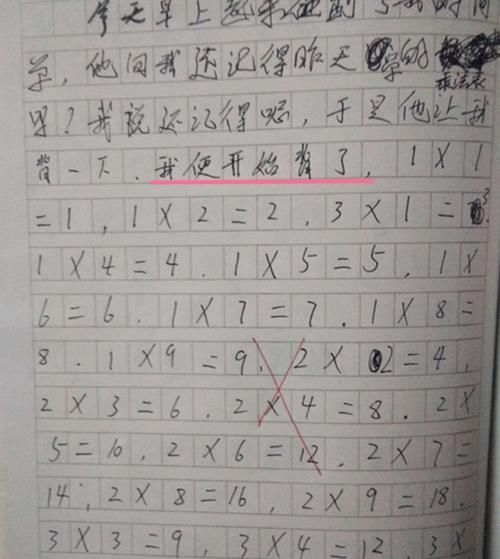 今天早上起来，
学，他问我还记得昨天学的乘法表
吗？我说还记得呢，于是他让我
背一下，我便开始背了，1×1
=1，1×2=2，3×1=3.
1×4=4．1×5=5，1×
6=6．1×7=7．1×8=
8．1×9=9．2×2=4，
2×3=6．2×4=8．2×
5=10．2×6=12．2×7=
14，2×8=16，2×9=18．
3×3=9，3×4=12 3×